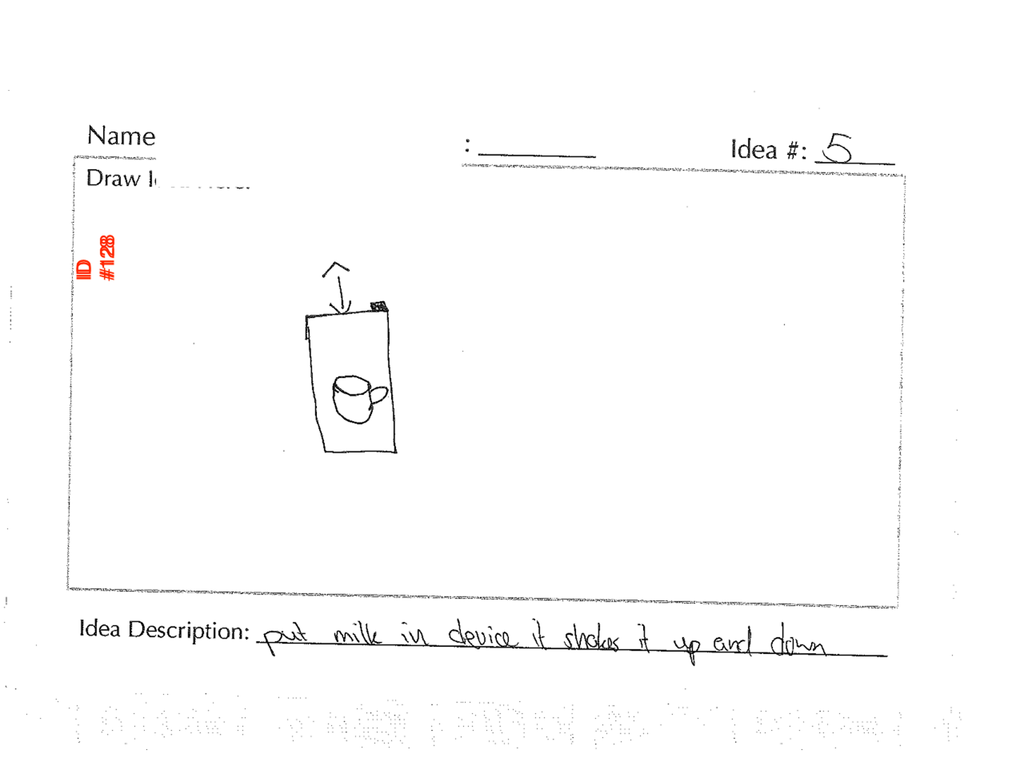 Name
: 
Idea #: 5
Draw
ID
#128
Idea Description: put milk in device it shakes it up and down